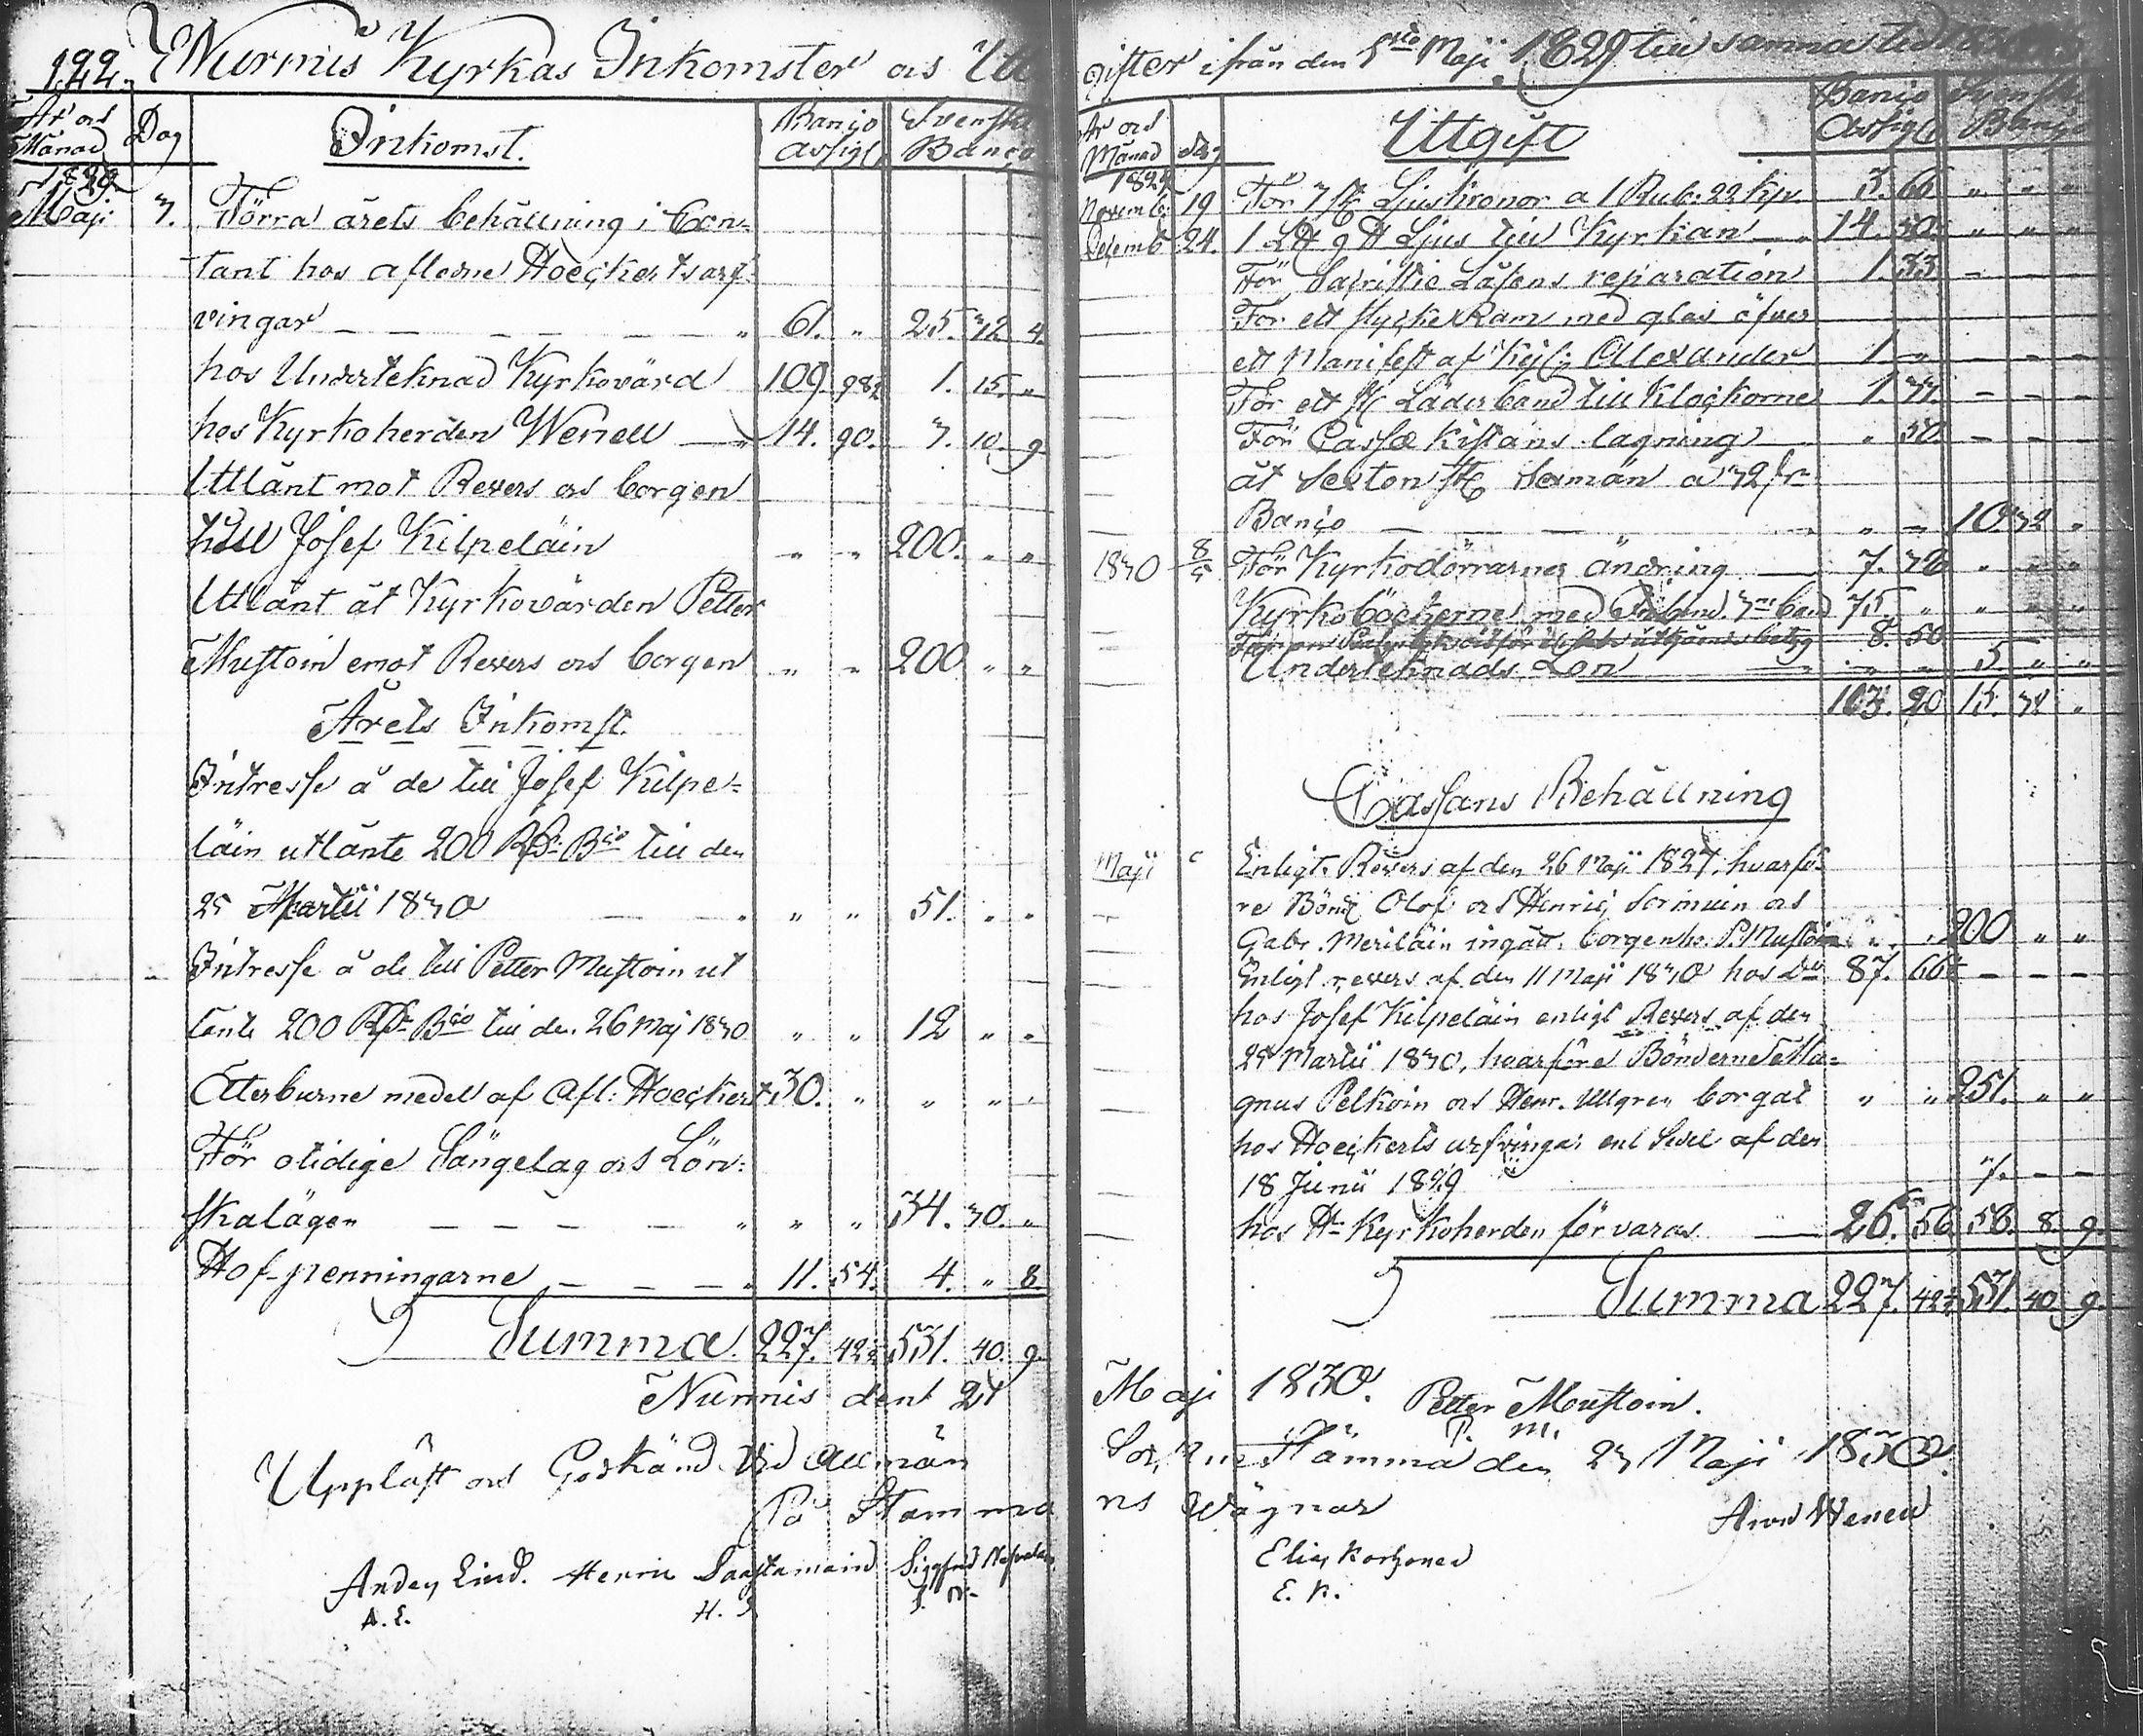 122. Nurmis Kyrkas Inkomster och Utt
År och Månad Dag Inkomst. Banco Assign Svenska Banco
1829
Maji 3. Förra årets behållning i Con-
tant hos afledne Hoeckerts arf-
vingar — — — — — „ 61. „ 25. 32 4.
hos Underteknad Kyrkovärd 109. 98½ 1. 15. „
hos Kyrkoherden Wenell — „ 14. 90. 3. 10. 9
Uttlånt mot Revers och borgen
till Josef Kilpeläin „ „ 200. „ „
Uttlånt åt Kyrkovärden Petter
Mustoin emot Revers och borgen „ „ 200 „ „
Årets Inkomst.
Intresse å de till Josef Kilpe-
läin utlånte 200 Rd: Bco till den
25 Martii 1830 „ „ 51. „ „
Intresse å de till Petter Mustoin ut
lånte 200 Rd: Bco till den 26 Maj 1830 „ „ 12 „ „
Återburne medel af Afl: Hoeckert 30. „ „ „ „
För otidige Sängelag och Lön-
skalägen — — — — „ „ „ 34. 30. „
Hof-penningarne — — — „ 11. 54. 4. „ 8.
Summa 227. 42½ 531. 40. 9.
Nurmis dent 21
Uppläst och Godkänd vid Allmän
På Stamma
Anders Lind. Henric Saastamoin Sigfrid
A. L. H. S. S. N.
gifter ifrån den 1sta Maji 1829 till samma tid
År och Månad Dag Uttgift Banco Assign Svenska Banco
1829
Novemb. 19 För 3 st Ljuskronor a 1 Rub. 22 kop. 3. 66 „ „ „
Decemb 24. 1 L℔ 9 ℔ Ljus till Kyrkan — 14. 50. „ „ „
För Sacristie Låsens reparation 1. 33 - - -
För ett stycke Ram med glas öfver
ett Manifest af Kejs: Alexander 1 „ - - -
För ett st Läderband till Klockorne 1. - - -
För Cassæ Kistans lagning „ 50 - - -
åt Sexton st Sexmän a 32 sk
Banco — — — — „ „ 10. 32 „
1830 8/5 För Kyrkodörrarnes ändring — 7. „ „ „
Kyrkoböckerne med Inband. 3ne band 75. „ „ „ „
8. 50
Underteknads Lön — „ „ 5 „ „
103. 20 15. 32 „
Cassans Behållning
Maji Enligt Revers af den 26 Maji 1827, hvarfö-
re Bönd. Olof och Henric Sormuin och
Gabr. Meriläin ingått borgen hos P. Mustoin „ „ 200 „ „
Enligt revers af den 11 Maji 1830 hos Do 87. 66½ - - -
hos Josef Kilpeläin enligt Revers af den
25 Martii 1830, hvarföre Bönderne Ma-
gnus Pelkoin och Henr. Ullgren borgat „ „ 251. „ „
hos Hoeckerts arfvingar enl Sedel af den
18 Junii 1829 7. - -
hos Hr Kyrkoherden förvaras — 26. 56 56. 8. 9.
Summa 227. 42½ 531. 40 9.
Maji 1830. Petter Mustoin.
P. M.
Sockne Stämma den 23 Maji 1830.
ns Wägnar Aron Wenell
Elias Korhonen
E. K.